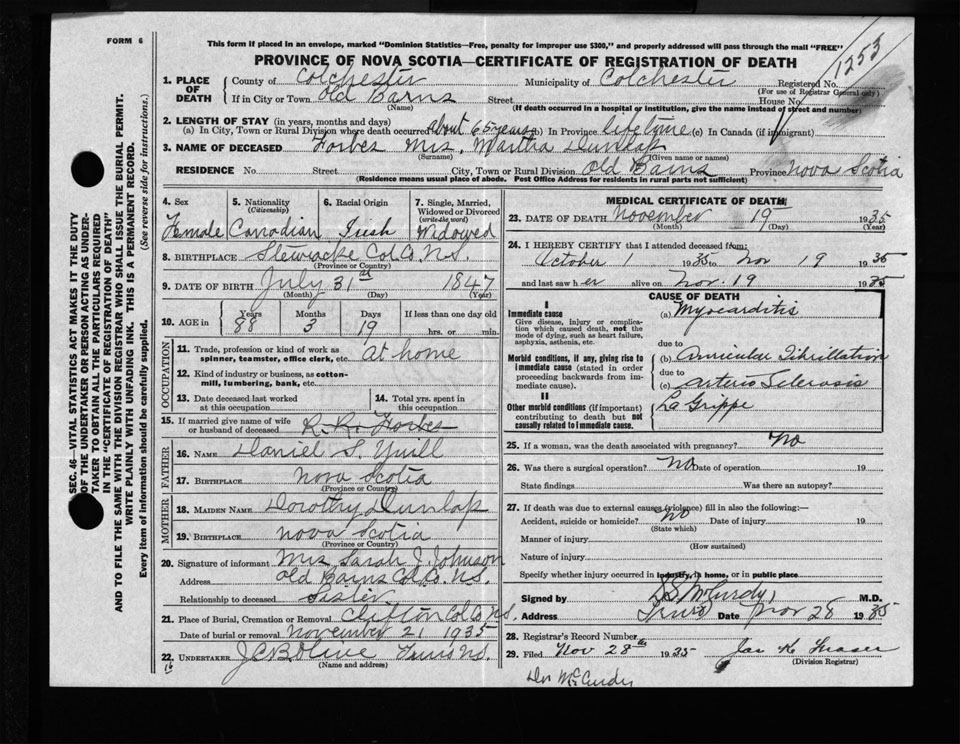 FORM 6
This form if placed in an envelope, marked "Dominion Statistics—Free, penalty for improper use $300," and properly addressed will pass through the mail "FREE"
PROVINCE OF NOVA SCOTIA—CERTIFICATE OF REGISTRATION OF DEATH
1253
SEC. 46—VITAL STATISTICS ACT MAKES IT THE DUTY
OF THE UNDERTAKER OR PERSON ACTING AS UNDER-
TAKER TO OBTAIN ALL THE PARTICULARS REQUIRED
IN THE "CERTIFICATE OF REGISTRATION OF DEATH"
AND TO FILE THE SAME WITH THE DIVISION REGISTRAR WHO SHALL ISSUE THE BURIAL PERMIT.
WRITE PLAINLY WITH UNFADING INK. THIS IS A PERMANENT RECORD.
Every item of information should be carefully supplied. (See reverse side for instructions.)
1. PLACE OF DEATH County of Colchester Municipality of Colchester Registered No.
(For use of Registrar General only)
If in City or Town Old Barns Street House No.
(If death occurred in a hospital or institution, give the name instead of street and number)
2. LENGTH OF STAY (in years, months and days)
(a) In City, Town or Rural Division where death occurred About 65 years (b) In Province lifetime (c) In Canada (if immigrant)
3. NAME OF DECEASED Forbes Mrs. Martha Dunlap
(Surname) (Given name or names)
RESIDENCE No. Street City, Town or Rural Division Old Barns Province Nova Scotia
(Residence means usual place of abode. Post Office Address for residents in rural parts not sufficient)
4. Sex 5. Nationality (Citizenship) 6. Racial Origin 7. Single, Married, Widowed or Divorced (write the word)
Female Canadian Irish Widowed
8. BIRTHPLACE Stewiacke Col. Co. N.S.
(Province or Country)
9. DATE OF BIRTH July 31st 1847
(Month) (Day) (Year)
10. AGE in Years Months Days If less than one day old
88 3 19 hrs. or min.
OCCUPATION
11. Trade, profession or kind of work as spinner, teamster, office clerk, etc. At home
12. Kind of industry or business, as cotton-mill, lumbering, bank, etc.
13. Date deceased last worked at this occupation 14. Total yrs. spent in this occupation
15. If married give name of wife or husband of deceased R. R. Forbes
FATHER
16. NAME Daniel S. Yuill
17. BIRTHPLACE Nova Scotia
(Province or Country)
MOTHER
18. MAIDEN NAME Dorothy Dunlap
19. BIRTHPLACE Nova Scotia
(Province or Country)
20. Signature of informant Mrs Sarah J. Johnson
Address Old Barns Col. Co. N.S.
Relationship to deceased Sister
21. Place of Burial, Cremation or Removal Clifton Col. Co. N.S.
Date of burial or removal November 21 1935
22. UNDERTAKER J.C.B. Olive Truro N.S.
(Name and address)
MEDICAL CERTIFICATE OF DEATH
23. DATE OF DEATH November 19 1935
(Month) (Day) (Year)
24. I HEREBY CERTIFY that I attended deceased from:
October 1 1935 to Nov 19 1935
and last saw her alive on Nov. 19 1935
CAUSE OF DEATH
I
Immediate cause
Give disease, injury or complication which caused death, not the mode of dying, such as heart failure, asphyxia, asthenia, etc.
(a) Myocarditis
due to
Morbid conditions, if any, giving rise to immediate cause (stated in order proceeding backwards from immediate cause).
(b) Auricular Fibrillation
due to
(c) Arterio Sclerosis
II
Other morbid conditions (if important) contributing to death but not causally related to immediate cause.
La Grippe
25. If a woman, was the death associated with pregnancy? No
26. Was there a surgical operation? No Date of operation 19
State findings Was there an autopsy?
27. If death was due to external causes (violence) fill in also the following:—
Accident, suicide or homicide? No Date of injury 19
(State which)
Manner of injury
(How sustained)
Nature of injury
Specify whether injury occurred in industry, in home, or in public place
Signed by S. McCurdy M.D.
Address Truro Date Nov 28 1935
28. Registrar's Record Number
29. Filed Nov 28th 1935 Jas K Fraser
(Division Registrar)
Dr McCurdy